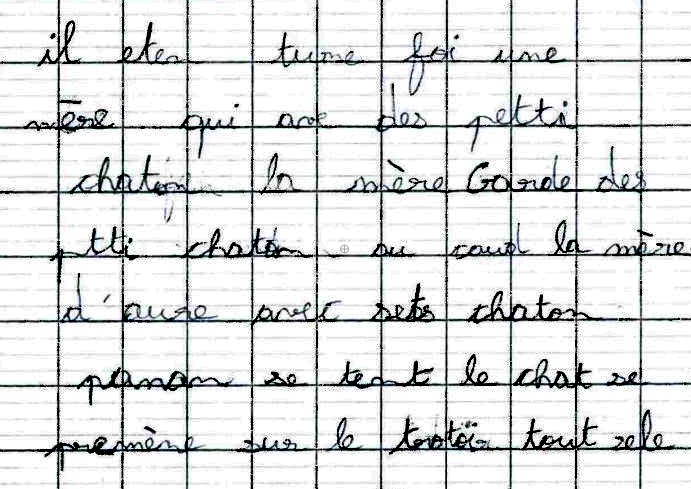 il eten tune foi une
mère qui ave des petti
chaton la mère Garde des
ptti chaton au caud la mère
d'aure avec sets chaton
panan se tent le chat se
premène sur le trotoir tout sele